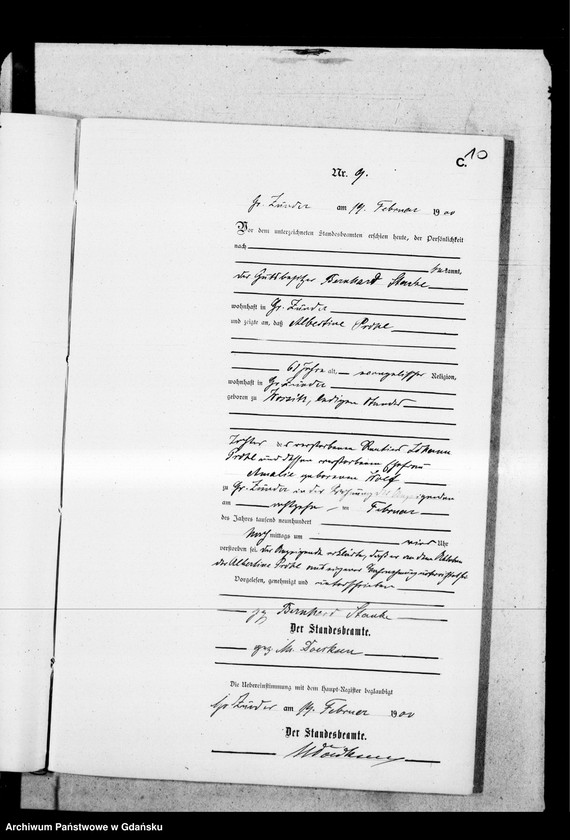 C. 10
Nr. 9.
Gr. Zünder am 19. Februar 1900
Vor dem unterzeichneten Standesbeamten erschien heute, der Persönlichkeit
nach
bekannt,
der Gutsbesitzer Bernhard
wohnhaft in Gr. Zünder
und zeigte an, daß Albertine
61 Jahre alt, evangelischer Religion,
wohnhaft in Gr. Zünder
geboren zu ledigen Standes
Tochter des verstorbenen Johann
und dessen verstorbenen Ehefrau
Amalie geborenen Wolf
zu Gr. Zünder in der Wohnung des Anzeigenden
am Februar
des Jahres tausend neunhundert
Nachmittags um Uhr
verstorben sei. Der Anzeigende erklärte, daß er von dem Ableben
der Albertine aus eigener
Vorgelesen, genehmigt und unterschrieben
gez Bernhard
Der Standesbeamte.
gez M. Doerksen
Die Uebereinstimmung mit dem Haupt-Register beglaubigt
Gr. Zünder am 19. Februar 1900
Der Standesbeamte.
M Doerksen
Archiwum Państwowe w Gdańsku